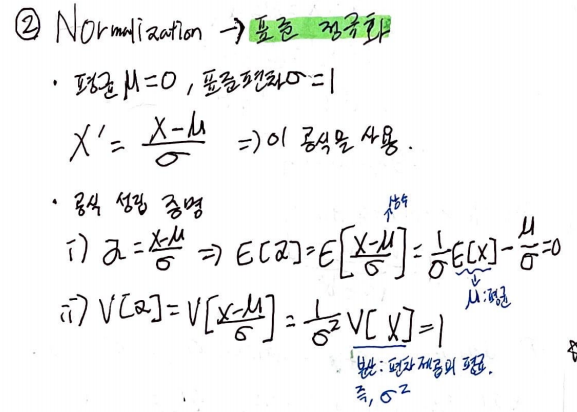 ② Normalization → 표준 정규화
· 평균 μ=0, 표준편차 σ=1
X' = (X-μ)/σ ⇒ 이 공식을 사용.
· 공식 성립 증명
상수
i) z = (X-μ)/σ ⇒ E[z] = E[(X-μ)/σ] = 1/σ E[X] - μ/σ = 0
μ:평균
ii) V[z] = V[(X-μ)/σ] = 1/σ² V[X] = 1
분산: 편차 제곱의 평균.
즉, σ²